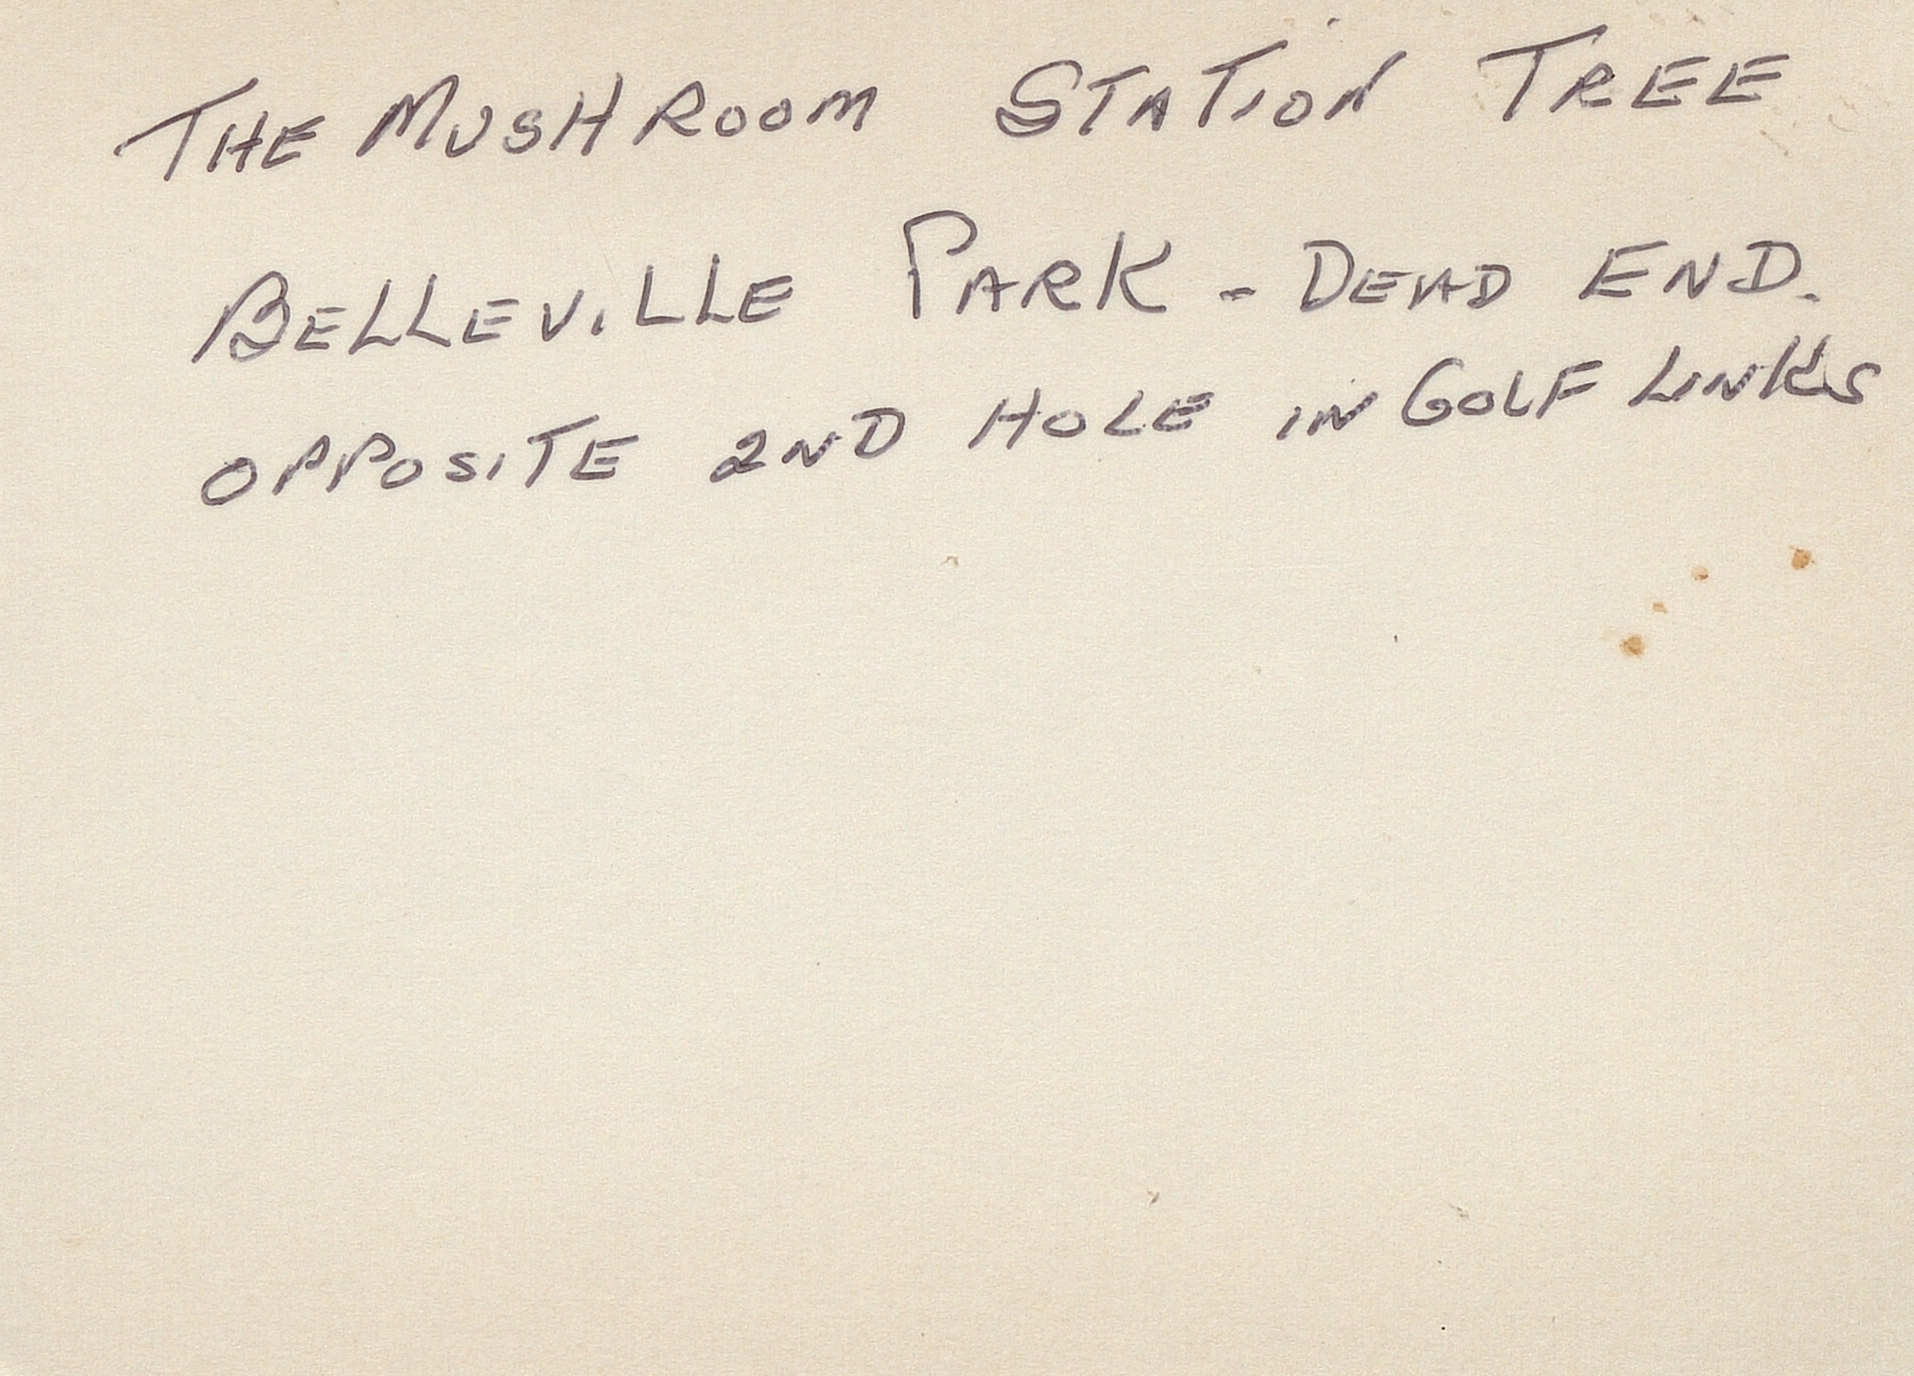 THE MUSHROOM STATION TREE
BELLEVILLE PARK - DEAD END.
OPPOSITE 2ND HOLE IN GOLF LINKS